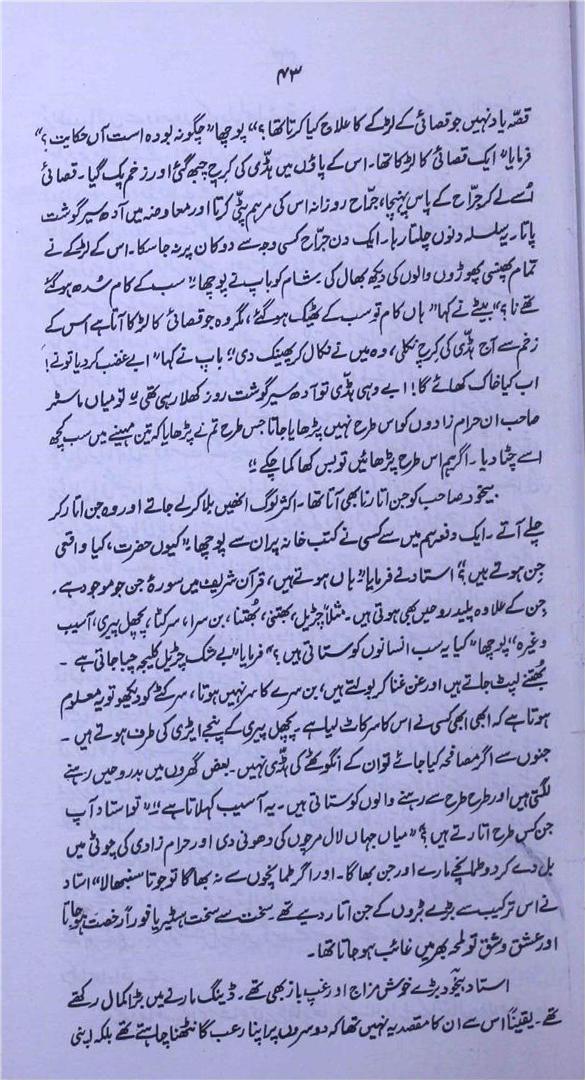 ۴۳
قصّہ یاد نہیں جو قصائی کے لڑکے کا علاج کیا کرتا تھا؟“ پوچھا ”چگونہ بودہ است آں حکایت؟“
فرمایا ”ایک قصائی کا لڑکا تھا۔ اس کے پاؤں میں ہڈّی کی کرچ چبھ گئی اور زخم پک گیا۔ قصائی
اُسے لے کر جرّاح کے پاس پہنچا، جرّاح روزانہ اس کی مرہم پٹّی کرتا اور معاوضہ میں آدھ سیر گوشت
پاتا۔ یہ سلسلہ دنوں چلتا رہا۔ ایک دن جرّاح کسی وجہ سے دوکان پر نہ جا سکا۔ اس کے لڑکے نے
تمام پھنسی پھوڑوں والوں کی دیکھ بھال کی۔ شام کو باپ نے پوچھا ”سب کے کام سُدھ ہو گئے
تھے نا؟“ بیٹے نے کہا ”ہاں کام تو سب کے ٹھیک ہو گئے، مگر وہ جو قصائی کا لڑکا آتا ہے اس کے
زخم سے آج ہڈّی کی کرچ نکلی، وہ میں نے نکال کر پھینک دی“؛ باپ نے کہا ”ابے غضب کر دیا تو نے!
اب کیا خاک کھائے گا! ابے وہی ہڈّی تو آدھ سیر گوشت روز کھلا رہی تھی“ تو میاں ماسٹر
صاحب ان حرام زادوں کو اس طرح نہیں پڑھایا جاتا جس طرح تم نے پڑھایا کہ تین مہینے میں سب کچھ
اسے چٹا دیا۔ اگر ہم اس طرح پڑھائیں تو بس کھا کما چکے“
بیخود صاحب کو جن اتارنا بھی آتا تھا۔ اکثر لوگ انھیں بلا کر لے جاتے اور وہ جن اتار کر
چلے آتے۔ ایک دفعہ ہم میں سے کسی نے کتب خانہ پر ان سے پوچھا ”کیوں حضرت، کیا واقعی
جِن ہوتے ہیں؟“ استاد نے فرمایا ”ہاں ہوتے ہیں، قرآن شریف میں سورۂ جن جو موجود ہے۔
جِن کے علاوہ پلید روحیں بھی ہوتی ہیں۔ مثلاً چڑیل، بھتنی، بُھتنا، بن سرا، سرکٹا، پچھل پیری، آسیب
وغیرہ“ پوچھا ”کیا یہ سب انسانوں کو ستاتی ہیں؟“ فرمایا ”بے شک چڑیل کلیجہ چبا جاتی ہے۔
بُھتنے لپٹ جاتے ہیں اور غن غنا کر بولتے ہیں؛ بن سرے کا سر نہیں ہوتا، سرکٹے کو دیکھو تو یہ معلوم
ہوتا ہے کہ ابھی ابھی کسی نے اس کا سر کاٹ لیا ہے۔ پچھل پیری کے پنجے ایڑی کی طرف ہوتے ہیں۔
جنوں سے اگر مصافحہ کیا جائے تو ان کے انگوٹھے کی ہڈّی نہیں۔ بعض گھروں میں بدروحیں رہنے
لگتی ہیں اور طرح طرح سے رہنے والوں کو ستاتی ہیں۔ یہ آسیب کہلاتا ہے“۔ ”تو استاد آپ
جن کس طرح اتارتے ہیں؟“ ”میاں جہاں لال مرچوں کی دھونی دی اور حرام زادی کی چوٹی میں
بل دے کر دو طمانچے مارے اور جن بھاگا۔ اور اگر طمانچوں سے نہ بھاگا تو جوتا سنبھالا“ استاد
نے اس ترکیب سے بڑے بڑوں کے جن اتار دیے تھے۔ سخت سے سخت ہسٹیریا فوراً رخصت ہو جاتا
اور عشق وشق تو لمحہ بھر میں غائب ہو جاتا تھا۔
استاد بیخود بڑے خوش مزاج اور غپ باز بھی تھے۔ ڈینگ مارنے میں بڑا کمال رکھتے
تھے۔ یقیناً اس سے ان کا مقصد یہ نہیں تھا کہ دوسروں پر اپنا رعب گانٹھنا چاہتے تھے بلکہ اپنی